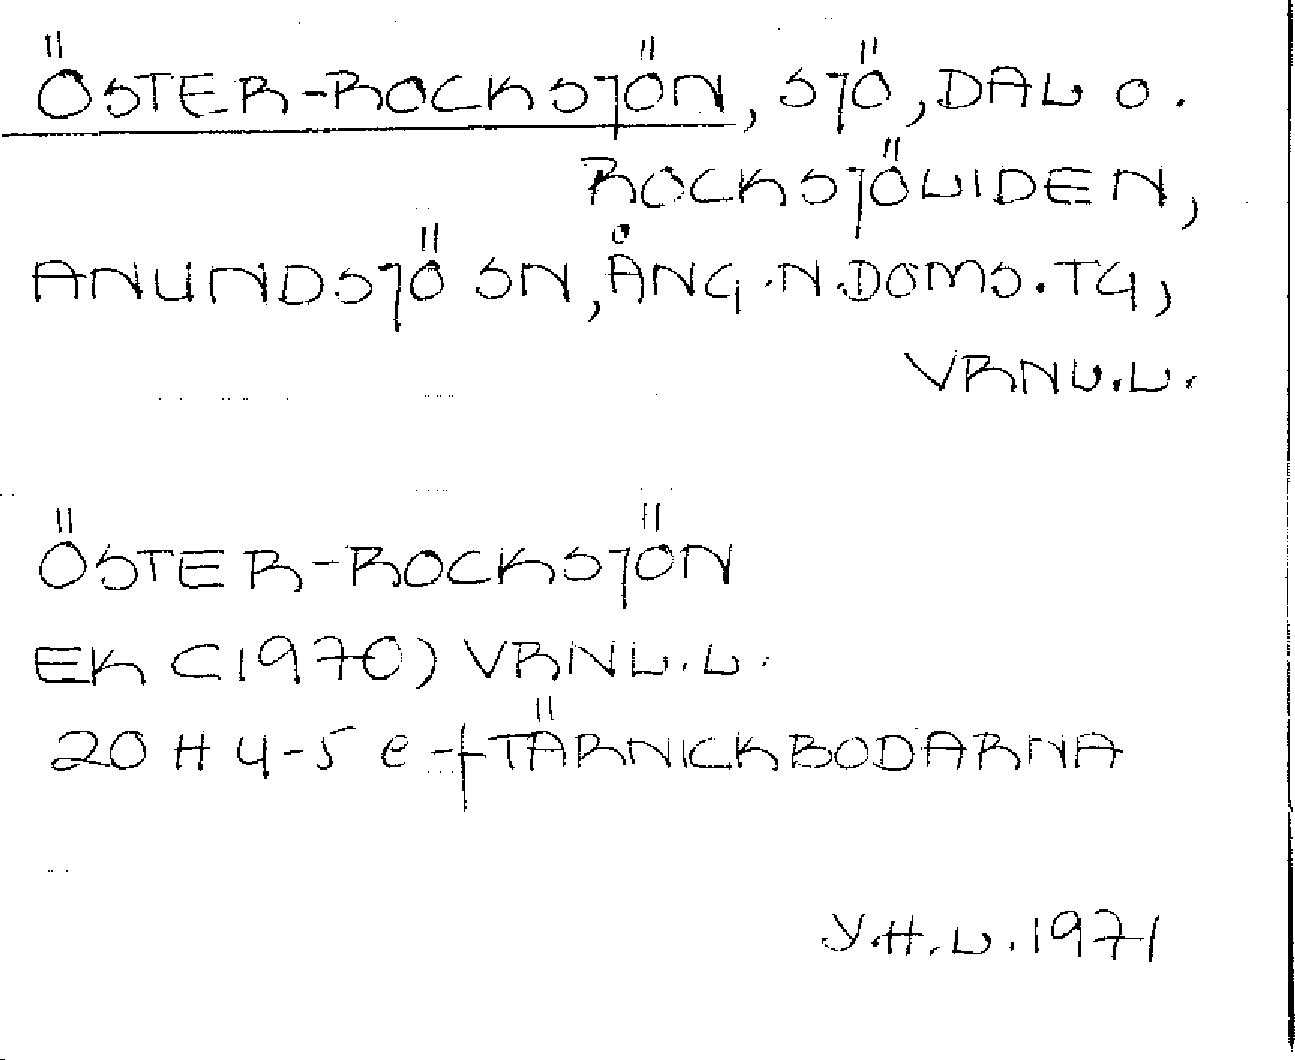 ÖSTER-ROCKSJÖN, SJÖ, DAL O.
ROCKSJÖLIDEN,
ANUNDSJÖ SN, ÅNG.N.DOMS.TG,
VRNL.L.
ÖSTER-ROCKSJÖN
EK (1970) VRNL.L.
20 H 4-5 e-f TÄRNICKBODARNA
Y.H.L. 1971